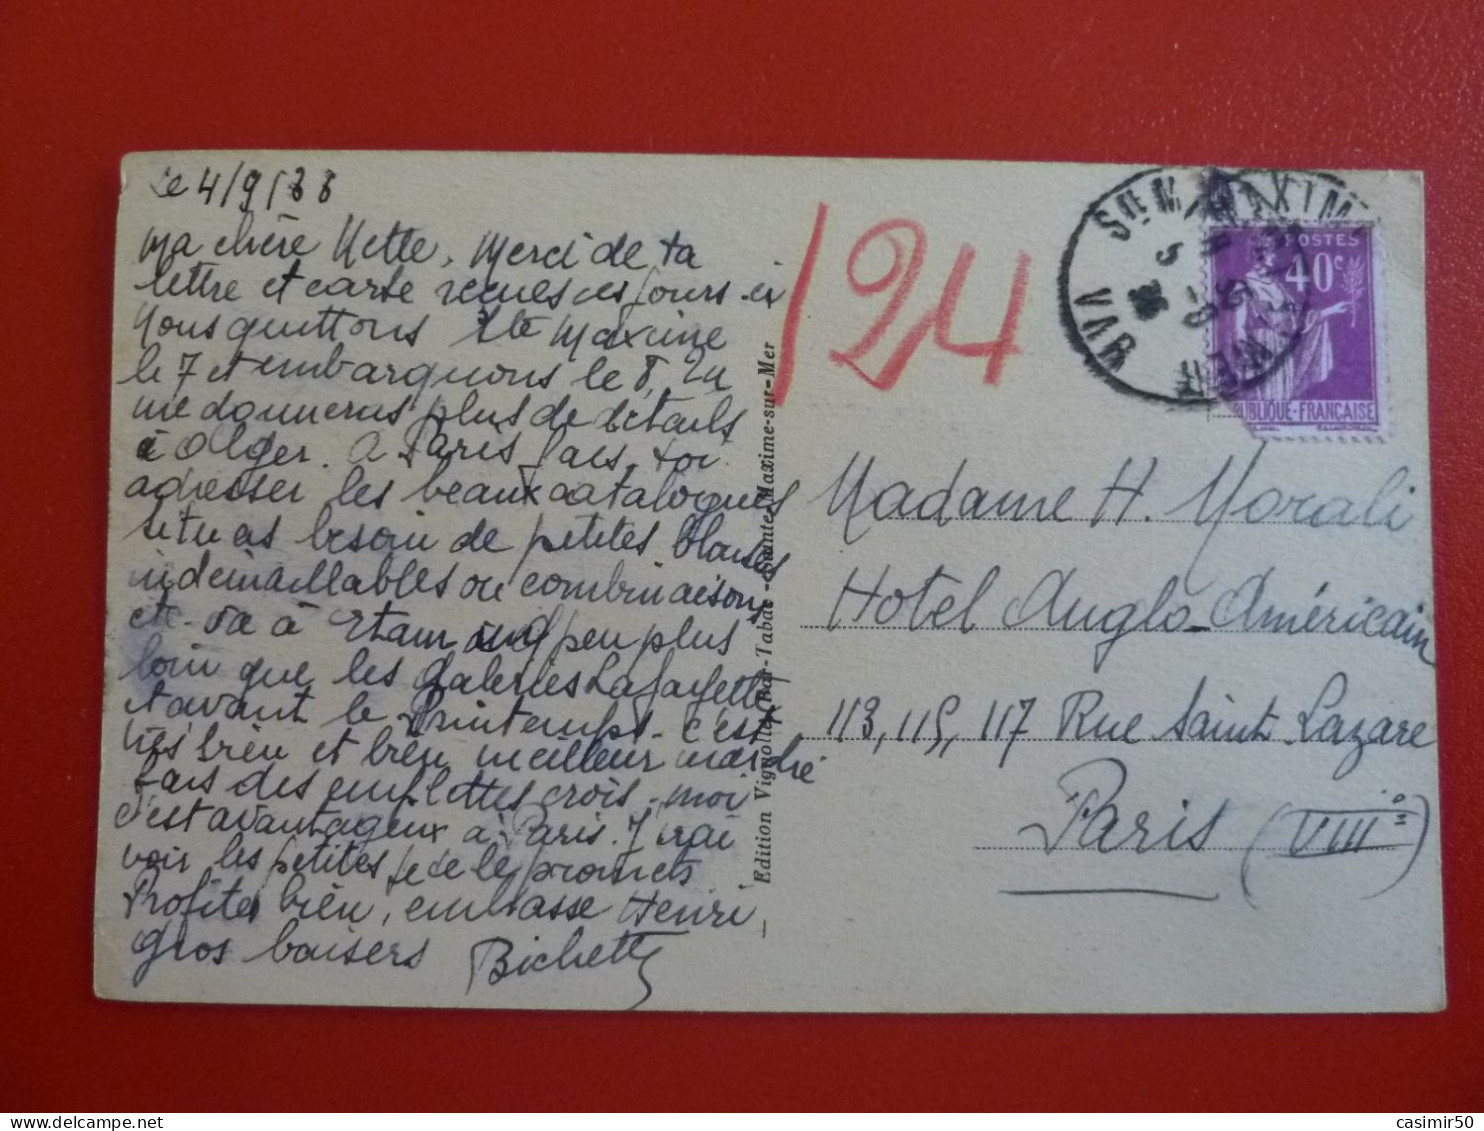 Le 4/9/38
Ma chère Nette, Merci de ta
lettre et carte reçues ces jours-ci
Nous quittons Ste Maxime
le 7 et embarquons le 8, Tu
me donneras plus de détails
à Alger. A Paris, fais-toi
adresser les beaux catalogues
si tu as besoin de petites blouses
indémaillables ou combinaisons
etc. va à Etam un peu plus
loin que les Galeries Lafayette
et avant le Printemps. C'est
très bien et bien meilleur marché
Fais des emplettes crois-moi
c'est avantageux à Paris. J'irai
voir les petites je te le promets
Profites bien, embrasse Henri
gros baisers Bichette
Edition Vignolle, Bar-Tabac - Sainte-Maxime-sur-Mer
124
STE MAXIME
VAR
POSTES
40c
RÉPUBLIQUE-FRANÇAISE
Madame H. Morali
Hotel Anglo-Américain
113, 115, 117 Rue Saint Lazare
Paris (VIIIe)
casimir50